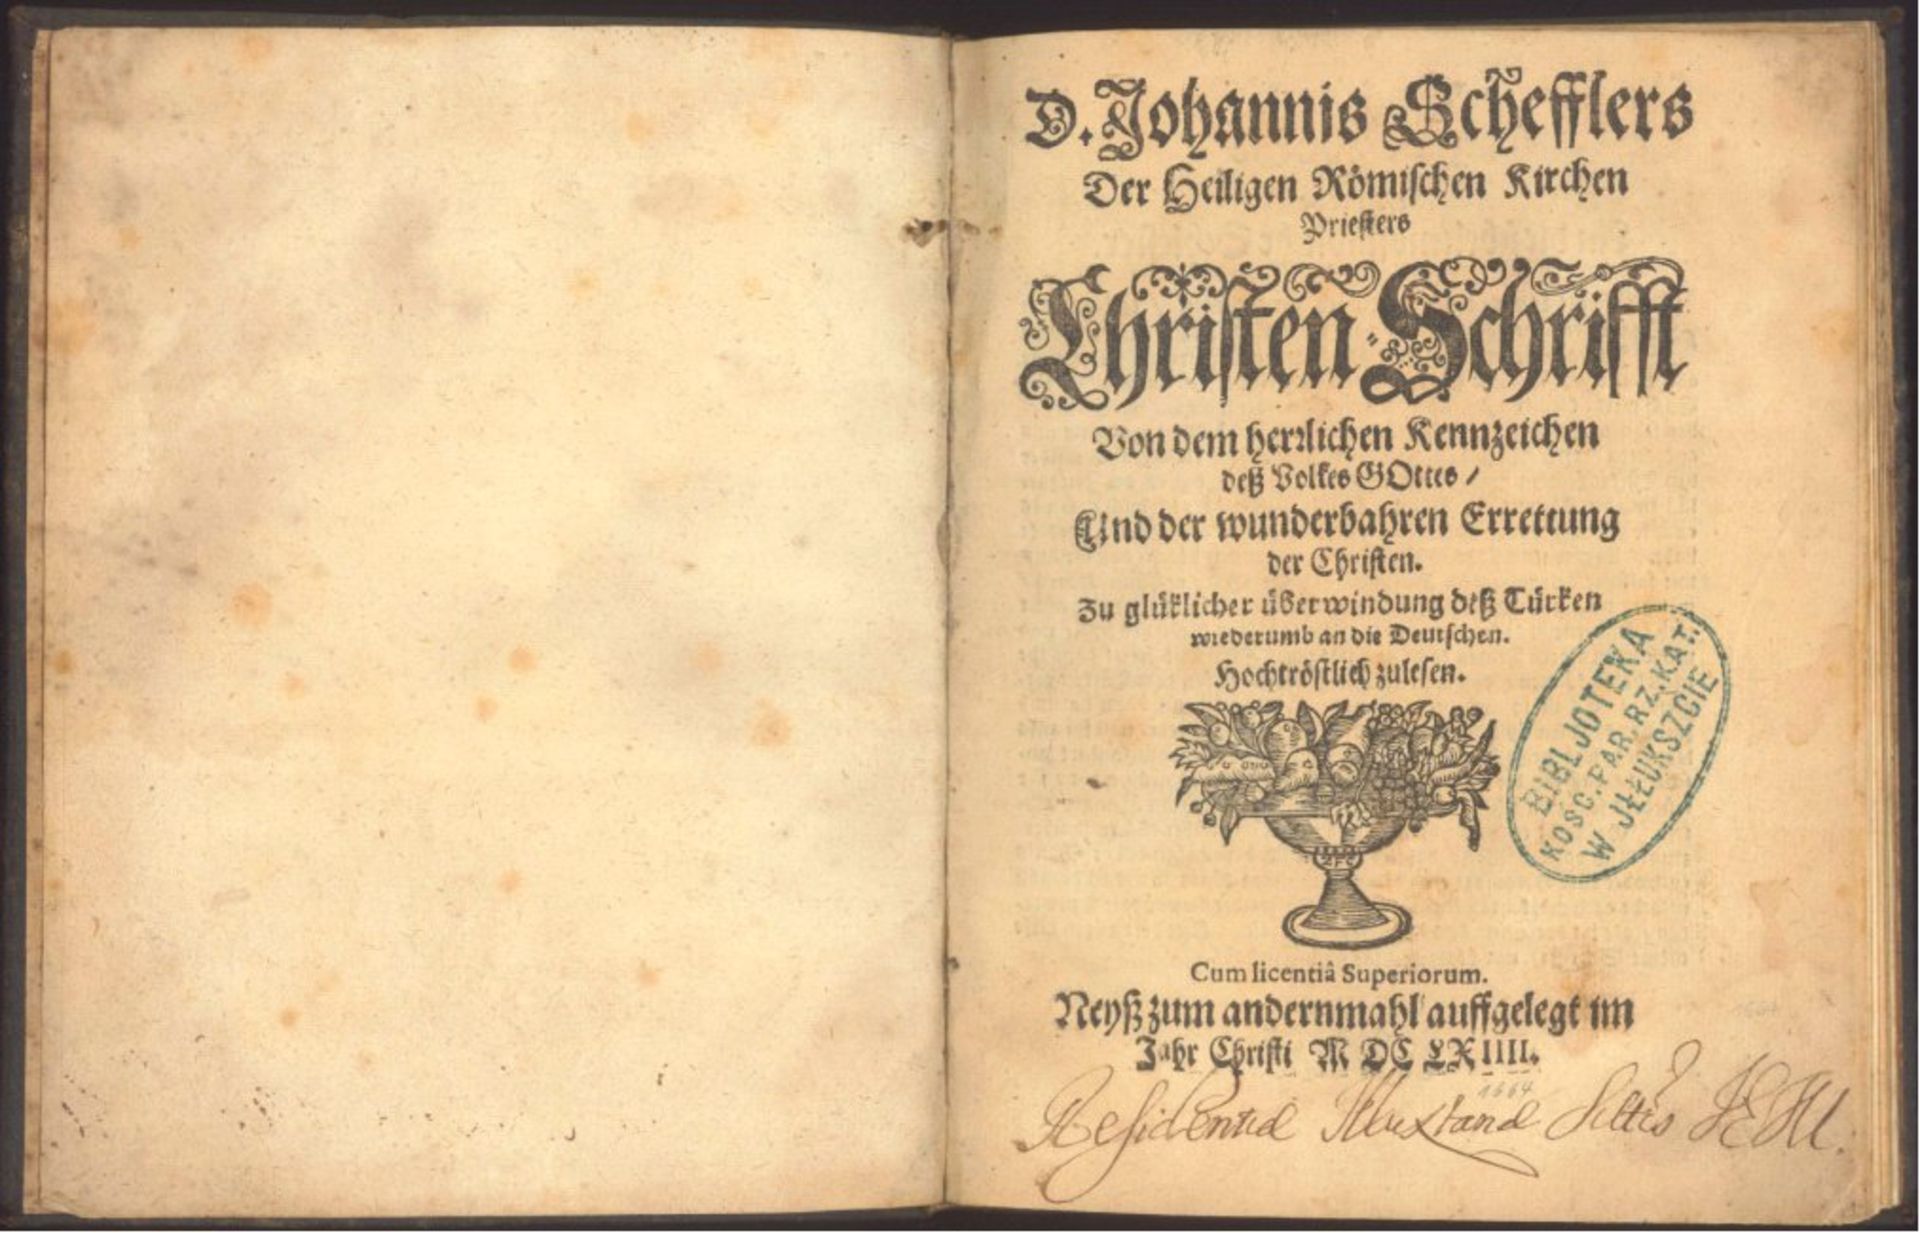 D. Johannis Schefflers
Der Heiligen Römischen Kirchen
Priesters
Christen-Schrifft
Von dem herꝛlichen Kennzeichen
deß Volkes GOttes /
Und der wunderbahren Errettung
der Christen.
Zu glüklicher überwindung deß Türken
wiederumb an die Deutschen.
Hochtröstlich zulesen.
BIBLJOTEKA
KOŚC. PAR. RZ. KAT.
W JŁŁUKSZCIE
Cum licentiâ Superiorum.
Neyß zum andernmahl auffgelegt im
Jahr Christi M DC LXIIII.
1664
Residentiæ Illuxtanæ Soctis JESU.